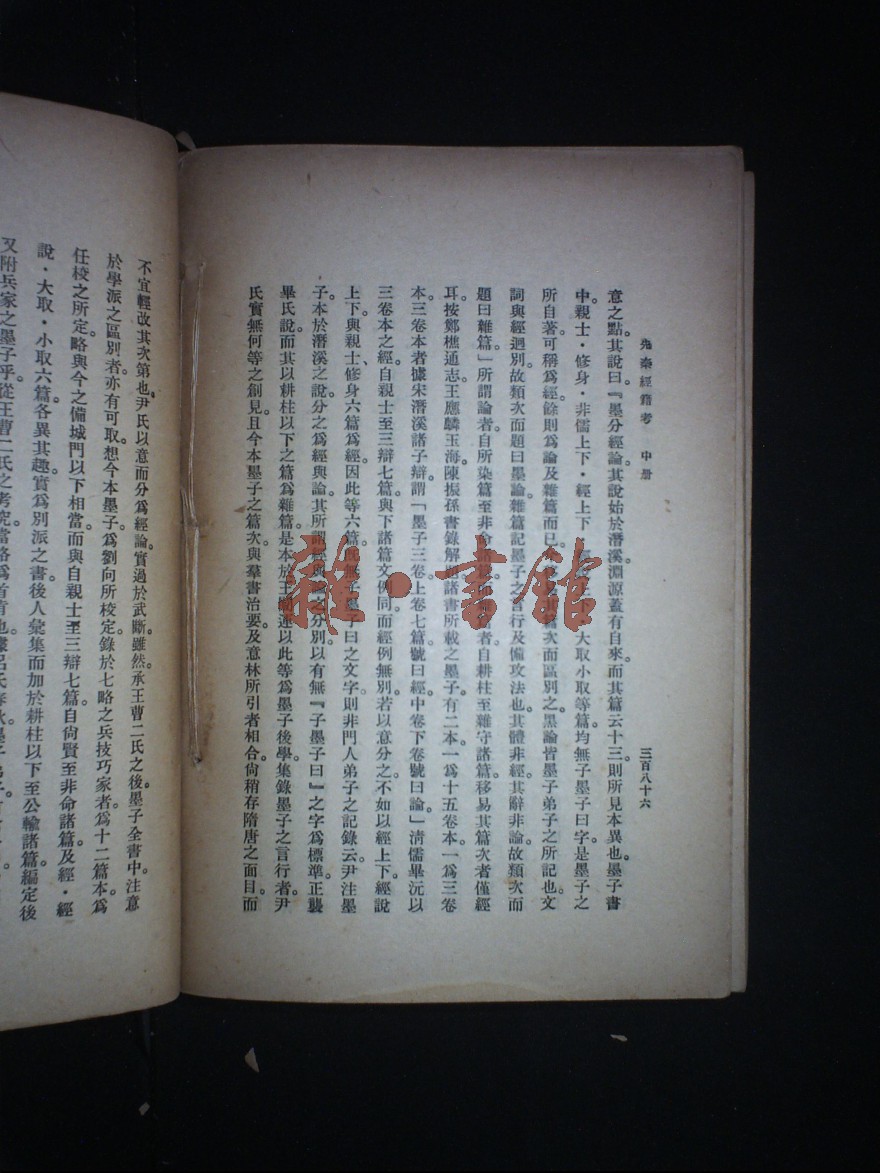 先秦經籍考　中册　三百八十六
意之點其說曰。『墨分經論。其說始於潛溪。淵源蓋有自來。而其篇云十三。則所見本異也。墨子書
中親士・修身・非儒上下・經上下 大取小取等篇。均無子墨子曰字。是墨子之
所自著。可稱爲經。餘則爲論及雜篇而已。 次而區別之。墨論皆墨子弟子之所記也。文
詞與經迥別。故類次而題曰墨論。雜篇記墨子之言行及備攻法也。其體非經。其辭非論。故類次而
題曰雜篇」所謂論者自所染篇至非命 者自耕柱至雜守諸篇。移易其篇次者僅經
耳。按鄭樵通志王應麟玉海陳振孫書錄解題諸書所載之墨子有二本。一爲十五卷本。一爲三卷
本。三卷本者據宋潛溪諸子辯。謂「墨子三卷。上卷七篇號曰經。中卷下卷號曰論。」淸儒畢沅以
三卷本之經自親士至三辯七篇與下諸篇文例同而經例無別。若以意分之。不如以經上下。經說
上下、與親士、修身六篇爲經。因此等六篇 無子墨子曰之文字。則非門人弟子之記錄云。尹注墨
子本於潛溪之說分之爲經與論。其所謂經與論之分別以有無『子墨子曰』之字爲標準。正襲
畢氏說。而其以耕柱以下之篇爲雜篇。是本於王闓運以此等爲墨子後學集錄墨子之言行者。尹
氏實無何等之創見。且今本墨子之篇次與羣書治要及意林所引者相合。尙稍存隋唐之面目。而
不宜輕改其次第也。尹氏以意而分爲經論。實過於武斷。雖然。承王曹二氏之後。墨子全書中。注意
於學派之區別者。亦有可取。想今本墨子爲劉向所校定。錄於七略之兵技巧家者。爲十二篇本。爲
任校之所定。略與今之備城門以下相當。而與自親士至三辯七篇。自尙賢至非命諸篇。及經・經
說・大取・小取六篇。各異其趣。實爲別派之書。後人彙集而加於耕柱以下至公輸諸篇。編定後
又附兵家之墨子乎。從王曹二氏之考究。當略爲首肯也。據呂氏春秋墨子弟子。
雜・書館